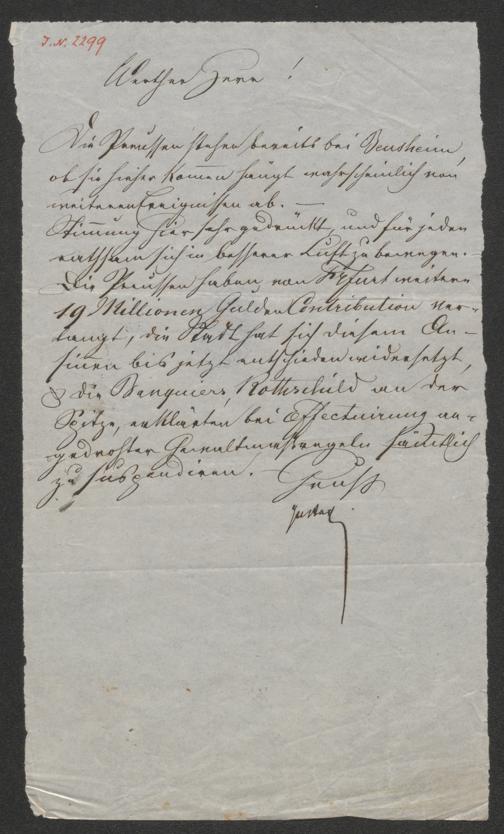 J. N. 2299
Werther Herr!
Die Preussen stehen bereits bei Bensheim,
ob sie hieher kommen hängt wahrscheinlich von
weiteren Ereignissen ab. —
Stimmung hier sehr gedrückt, und für jeden
rathsam sich in besserer Luft zu bewegen.
Die Preussen haben von Frkfurt weitere
19 Millionen Gulden Contribution ver-
langt, die Stadt hat sich diesem An-
sinnen bis jetzt entschieden widersetzt,
& die Banquiers, Rothschild an der
Spitze, erklärten bei Effectuirung an-
gedrohter Gewaltmaßregeln sämtlich
zu suspendiren. —
Gruß